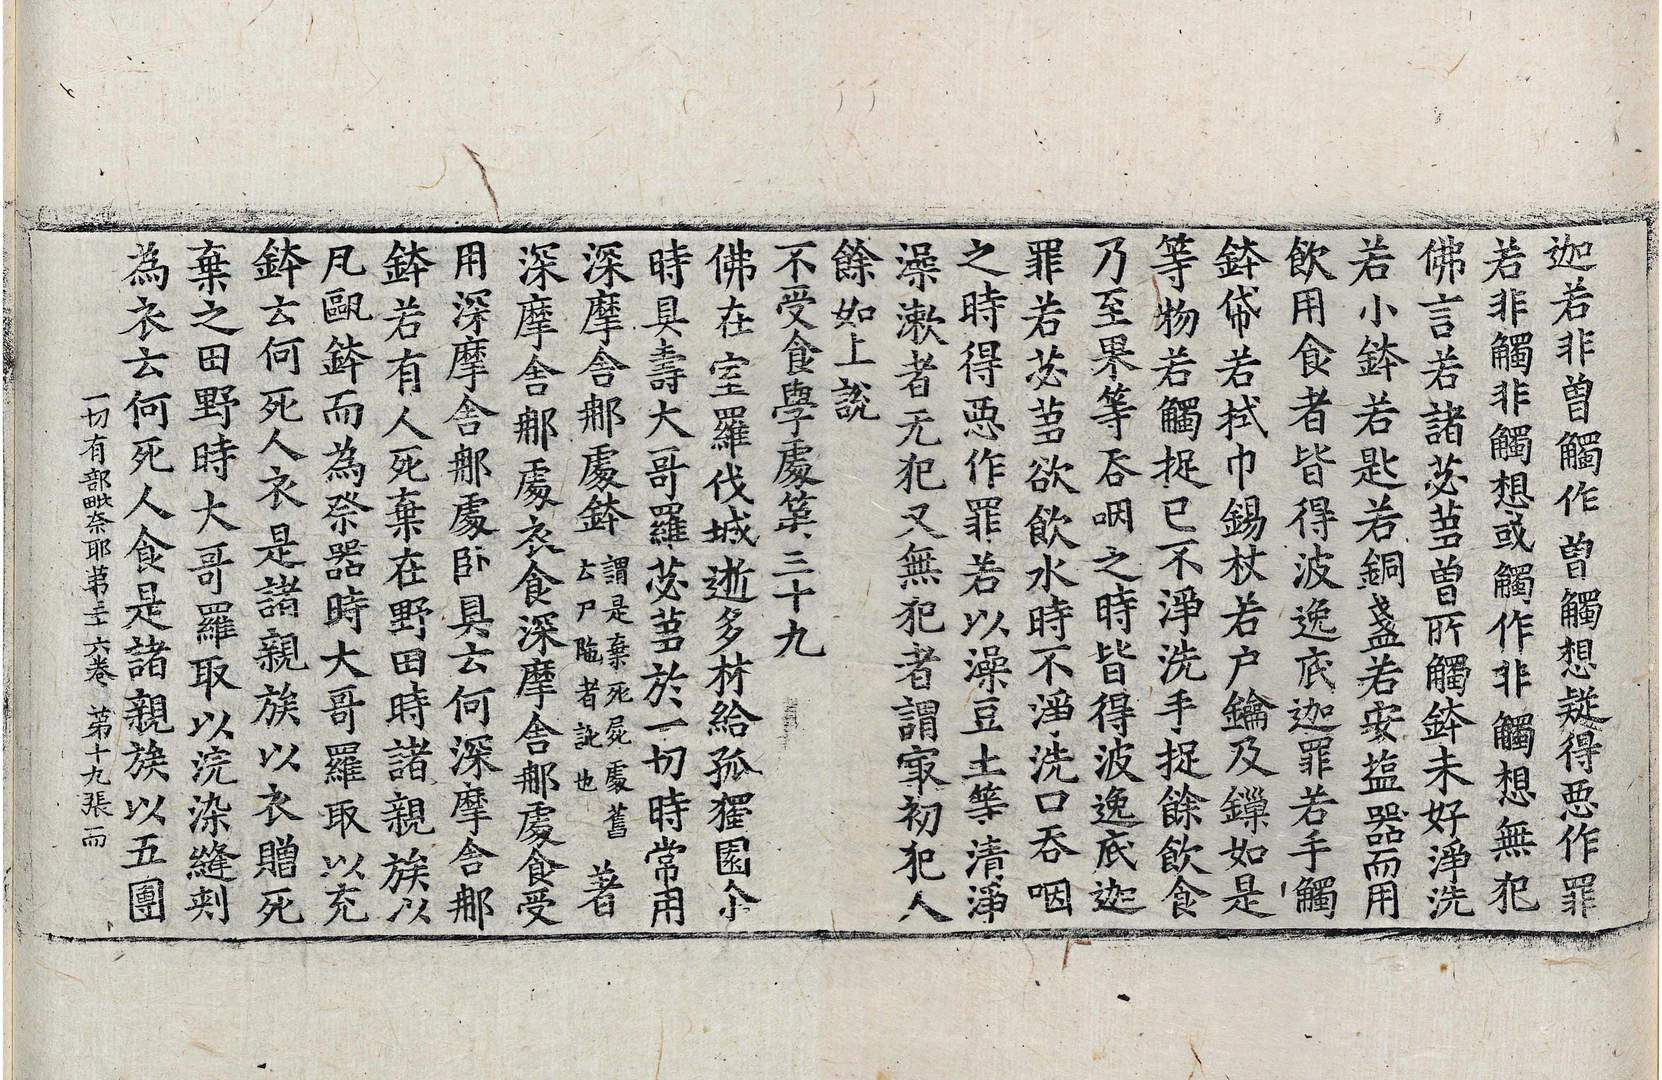 迦若非曾觸作曾觸想疑得惡作罪
若非觸非觸想或觸作非觸想無犯
佛言若諸苾芻曾所觸鉢未好淨洗
若小鉢若匙若銅盞若安盐器而用
飲用食者皆得波逸底迦罪若手觸
鉢帒若拭巾錫杖若户鑰及鏁如是
等物若觸捉已不淨洗手捉餘飲食
乃至果等吞咽之時皆得波逸底迦
罪若苾芻欲飲水時不淨洗口吞咽
之時得惡作罪若以澡豆土等清淨
澡漱者无犯又無犯者謂冣初犯人
餘如上說
不受食學處第三十九
佛在室羅伐城逝多林給孤獨園尒
時具壽大哥羅苾芻於一切時常用
深摩舍那處鉢謂是棄死屍處舊云尸陁者訛也著
深摩舍那處衣食深摩舍那處食受
用深摩舍那處卧具云何深摩舍那
鉢若有人死棄在野田時諸親族以
凡甌鉢而為祭器時大哥羅取以充
鉢云何死人衣是諸親族以衣贈死
棄之田野時大哥羅取以浣染縫刾
為衣云何死人食是諸親族以五團
一切有部毗奈耶第三十六卷 第十九張 而